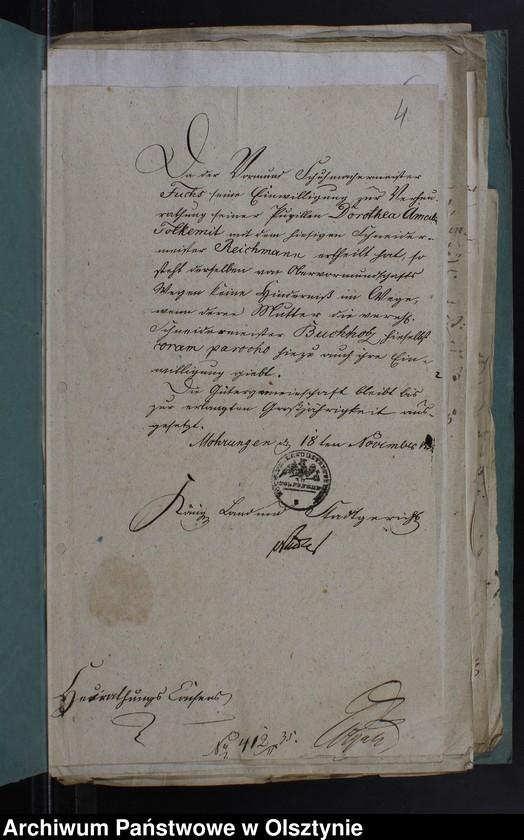 4
Da der Vormund Schuhmachermeister
Fuchs seine Einwilligung zur Verheu-
rathung seiner Pupillin Dorothea Amalie
Tolkemit mit dem hiesigen Schneider-
meister Reichmann ertheilt hat, so
steht derselben von Obervormundschafts
Wegen keine Hinderniß im Wege,
wenn deren Mutter die verehl.
Schneidermeister Buchholz hieselbst
coram parocho hiezu auch ihre Ein-
willigung giebt.
Die Gütergemeinschaft bleibt bis
zur erlangten Großjährigkeit aus-
gesetzt.
Mohrungen d 18ten November
Königl Land und Stadtgericht
Heurathungs Consens
No 412 35.
Archiwum Państwowe w Olsztynie